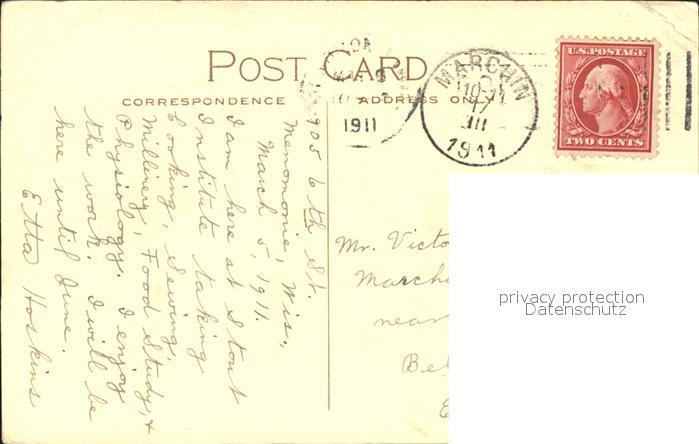 POST CARD
CORRESPONDENCE
ADDRESS ONLY
1911
MARCHIN
10-11
17
III
1911
U.S. POSTAGE
TWO CENTS
905 6th St.
Menomonie, Wis.,
March 5, 1911.
I am here at Stout
Institute taking
Cooking, Sewing,
Millinery, Food Study, &
Physiology. I enjoy
the work. I will be
here until June.
Etta Hoskins
Mr. Victo
Marchi
near
Bel
privacy protection
Datenschutz